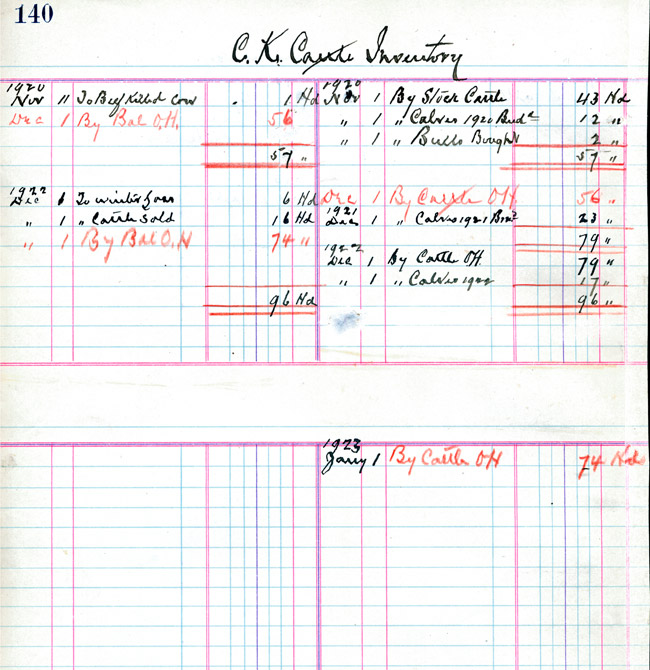 140
C. K. Cattle Inventory
1920
Nov 11 To Beef Killed Cow 1 Hd
Dec 1 By Bal O.H. 56
57 "
1922
Dec 1 To winter loss 6 Hd
" 1 " Cattle Sold 16 Hd
" 1 By Bal O.H 74 "
96 Hd
1920
Nov 1 By Stock Cattle 43 Hd
" 1 " Calves 1920 Brd 12 "
" 1 " Bulls Bought 2 "
57 "
Dec 1 By Cattle OH 56 "
1921
Dec 1 " Calves 1921 23 "
79 "
1922
Dec 1 By Cattle OH 79 "
" 1 " Calves 1922 17 "
96 "
1923
Jany 1 By Cattle OH 74 Hd